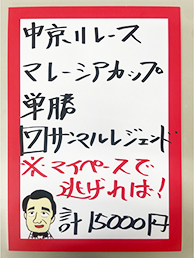 中京11レース
マレーシアカップ
単勝
7サンマルレジェンド
※マイペースで
逃げれば!
計15000円